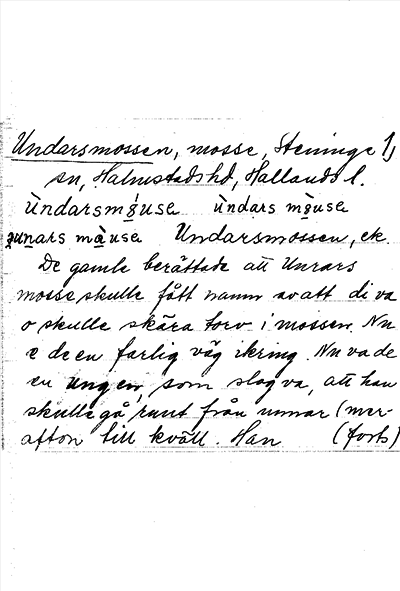 Undarsmossen, mosse, Steninge 1,
sn, Halmstads hd, Hallands l.
ùndarsmǻuse ùndars måuse
unars màuse Undarsmossen, ek.
De gamle berättade att Unrars
mosse skulle fått namn av att di va
o skulle skära torv i mossen. Nu
e de en farlig väg ikring. Nu va de
en ungen, som slog va, att han
skulle gå runt från unnar (mer-
afton till kväll. Han (forts)